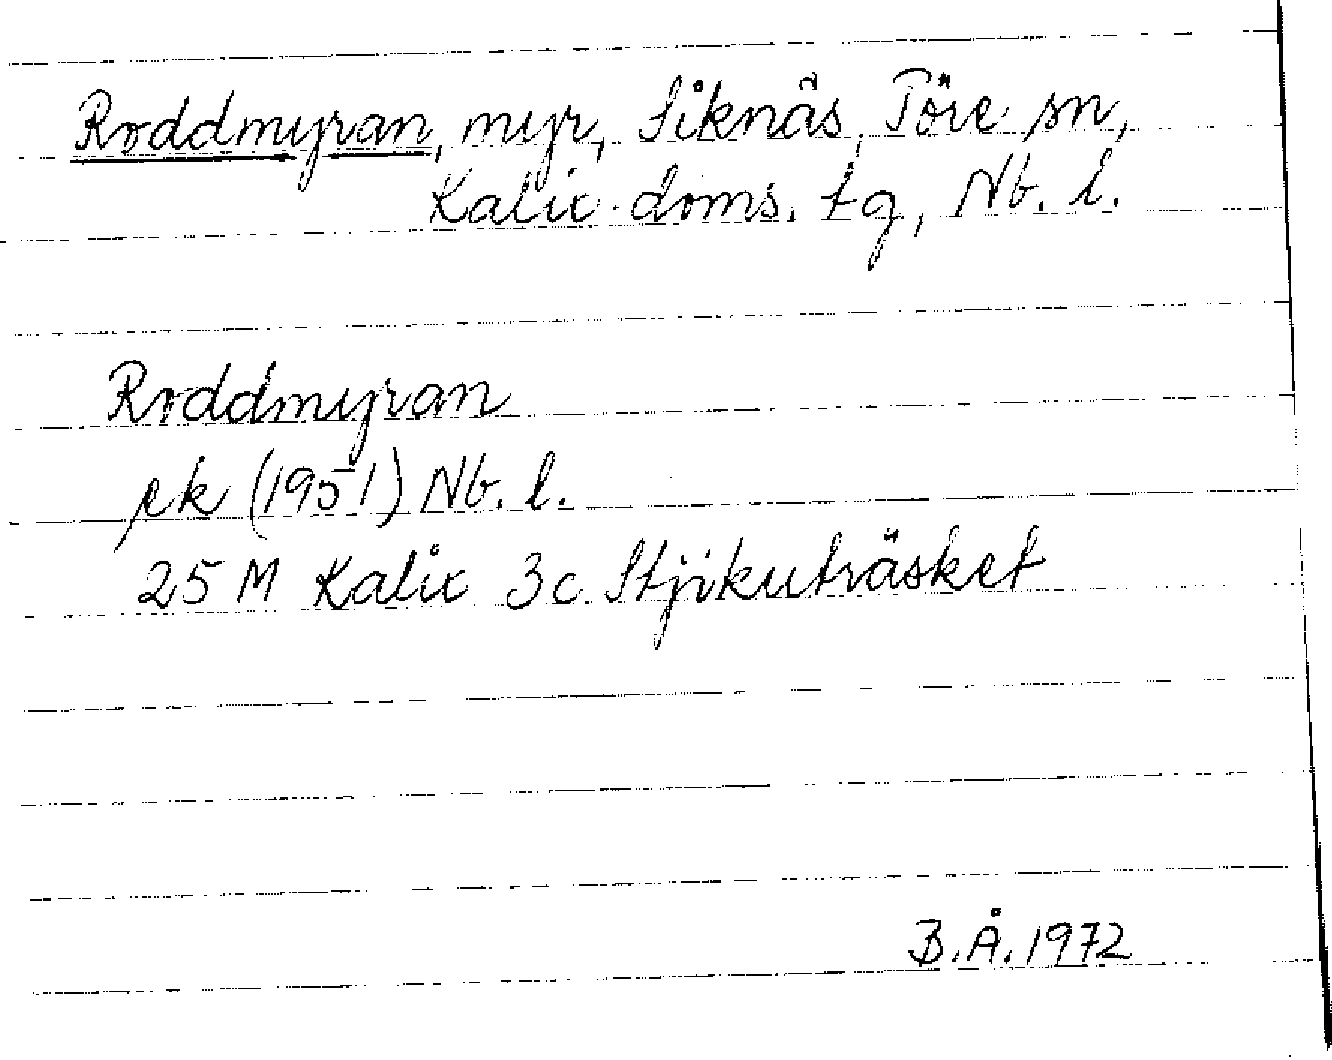 Roddmyran, myr, Siknäs, Töre sn,
Kalix doms. tg, Nb. l.
Roddmyran
ek (1951) Nb. l.
25 M Kalix 3c Stjikuträsket
B.Å. 1972